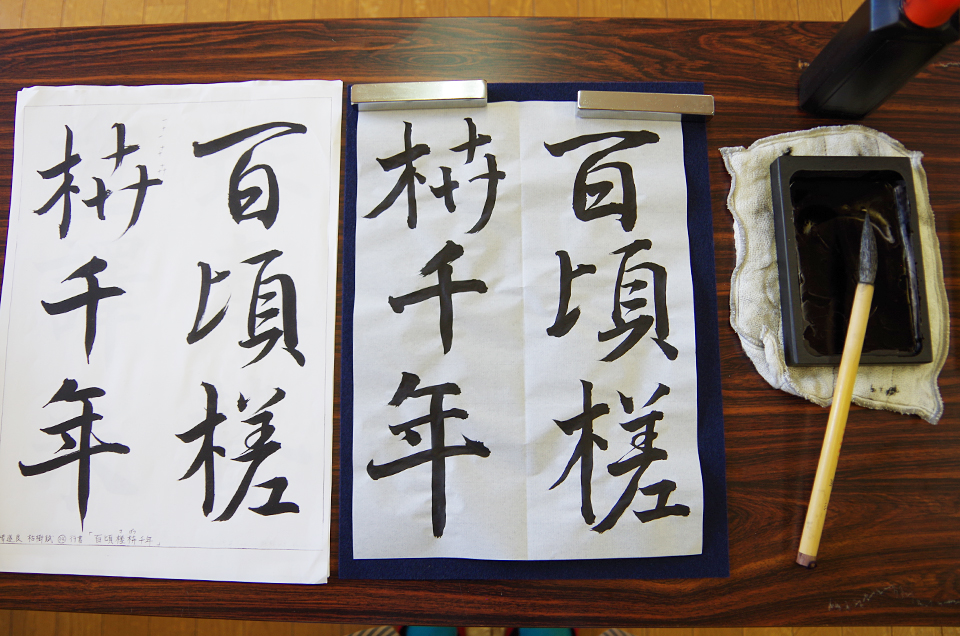 百頃槎
枿千年
百頃槎
枿千年
遂良 枯樹賦 行書「百頃槎枿千年」